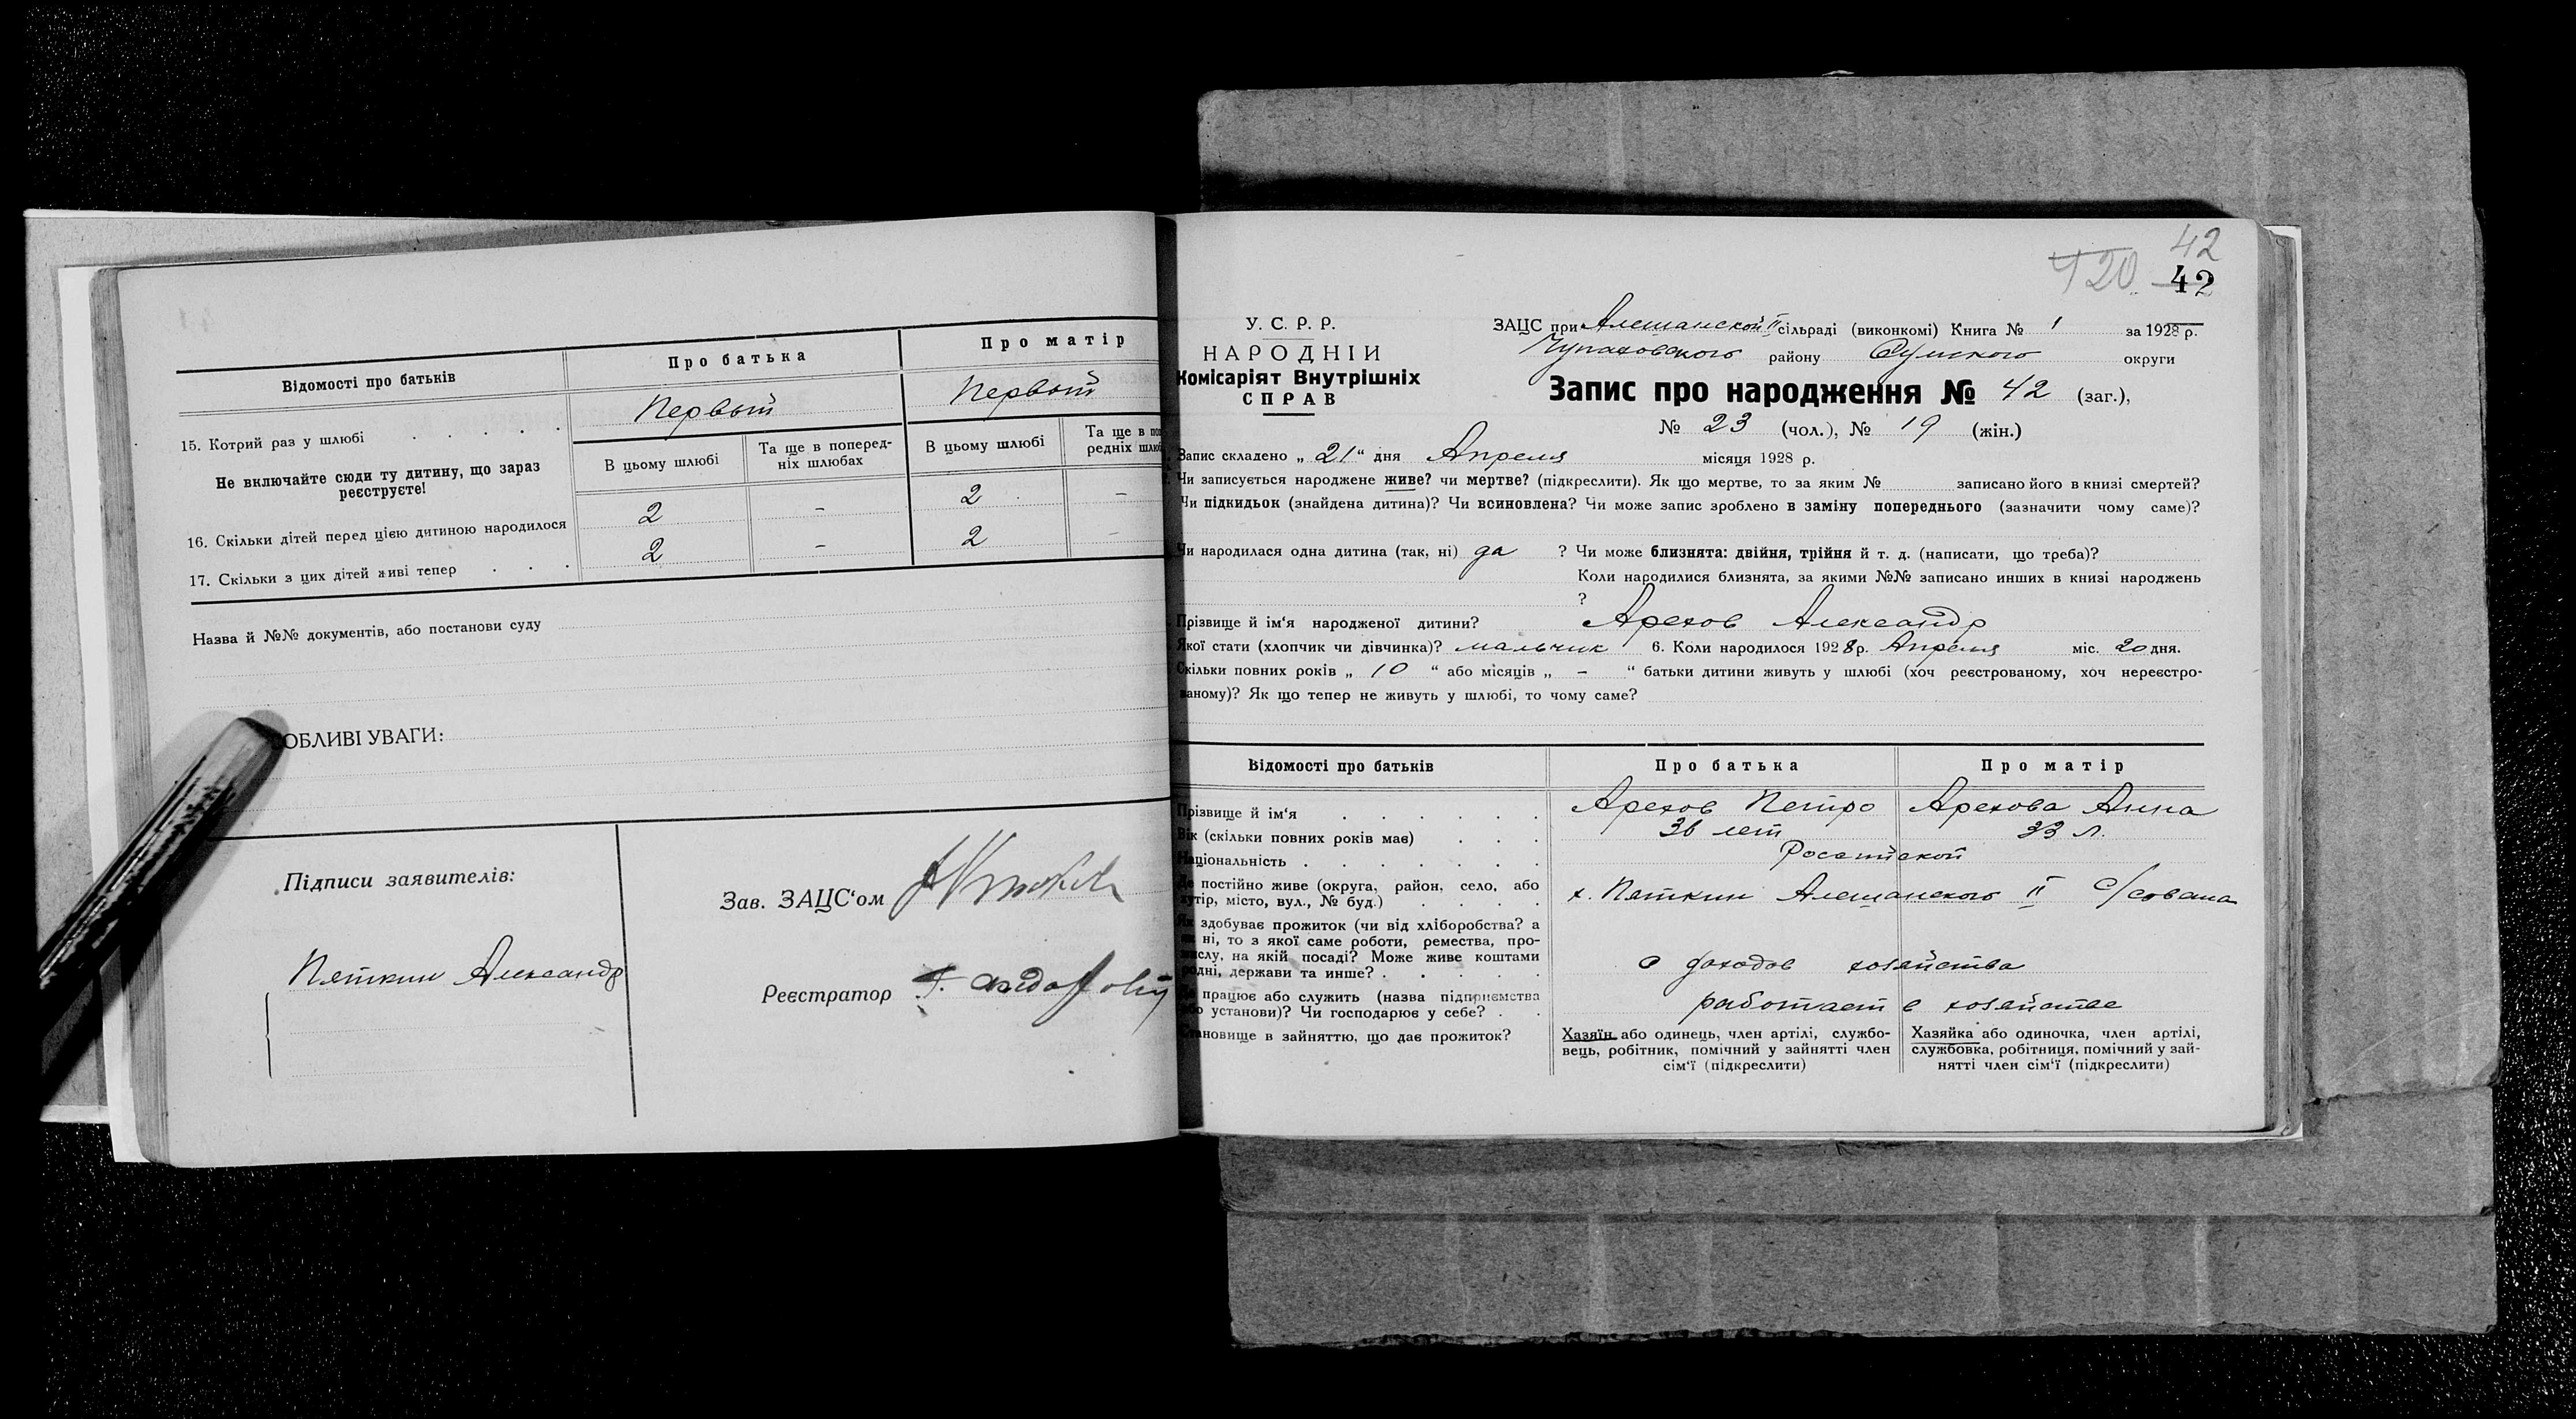 Відомості про батьків
Про батька
Про матір
15. Котрий раз у шлюбі
Первый
Первый
Не включайте сюди ту дитину, що зараз
реєструєте!
В цьому шлюбі
Та ще в поперед-
ніх шлюбах
В цьому шлюбі
Та ще в по
редніх шлю
16. Скільки дітей перед цією дитиною народилося
2
-
2
-
17. Скільки з цих дітей живі тепер
2
-
2
-
Назва й №№ документів, або постанови суду
ОБЛИВІ УВАГИ:
Підписи заявителів:
Пяткин Александр
Зав. ЗАЦС‘ом
Реєстратор
120 42
42
У. С. Р. Р.
НАРОДНІЙ
Комісаріят Внутрішніх
СПРАВ
ЗАЦС при Алешанской II сільраді (виконкомі) Книга № 1 за 1928 р.
Чупаховского району Сумского округи
Запис про народження № 42 (заг.),
№ 23 (чол.), № 19 (жін.)
Запис складено „ 21 “ дня Апреля місяця 1928 р.
Чи записується народжене живе? чи мертве? (підкреслити). Як що мертве, то за яким № записано його в книзі смертей?
Чи підкидьок (знайдена дитина)? Чи всиновлена? Чи може запис зроблено в заміну попереднього (зазначити чому саме)?
Чи народилася одна дитина (так, ні) да ? Чи може близнята: двійня, трійня й т. д. (написати, що треба)?
Коли народилися близнята, за якими №№ записано инших в книзі народжень
?
Прізвище й ім‘я народженої дитини? Арехов Александр
Якої стати (хлопчик чи дівчинка)? мальчик 6. Коли народилося 1928 р. Апреля міс. 20 дня.
Скільки повних років „ 10 “ або місяців „ - “ батьки дитини живуть у шлюбі (хоч реєстрованому, хоч нереєстро-
ваному)? Як що тепер не живуть у шлюбі, то чому саме?
Відомості про батьків
Про батька
Про матір
Прізвище й ім‘я
Арехов Петро
Арехова Анна
Вік (скільки повних років має)
36 лет
33 л.
Національність
Российской
Де постійно живе (округа, район, село, або
хутір, місто, вул., № буд.)
х. Пяткин Алешанского II с/совета
Як здобуває прожиток (чи від хліборобства? а
ні, то з якої саме роботи, ремества, про-
мислу, на якій посаді? Може живе коштами
родні, держави та инше?
с доходов хозяйства
працює або служить (назва підприємства
або установи)? Чи господарює у себе?
работает в хозяйстве
Становище в зайняттю, що дає прожиток?
Хазяїн або одинець, член артілі, службо-
вець, робітник, помічний у зайнятті член
сім‘ї (підкреслити)
Хазяйка або одиночка, член артілі,
службовка, робітниця, помічний у зай-
нятті член сім‘ї (підкреслити)